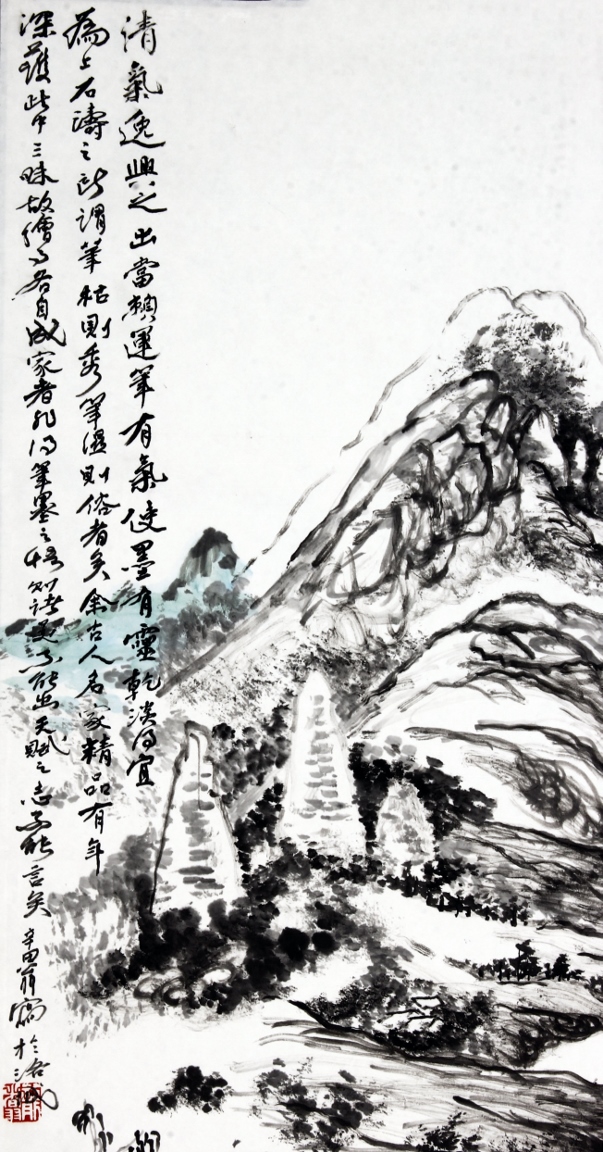 清氣逸興之出當頼運筆有氣使墨有靈乾淡得宜
為上石濤之所謂筆枯則秀筆濕則俗者矣余古人名家精品有年
深蘊此中三昧故繪了各自成家者非得筆墨之悟能出天賦之志不能言矣
辛田翁寫於洛城